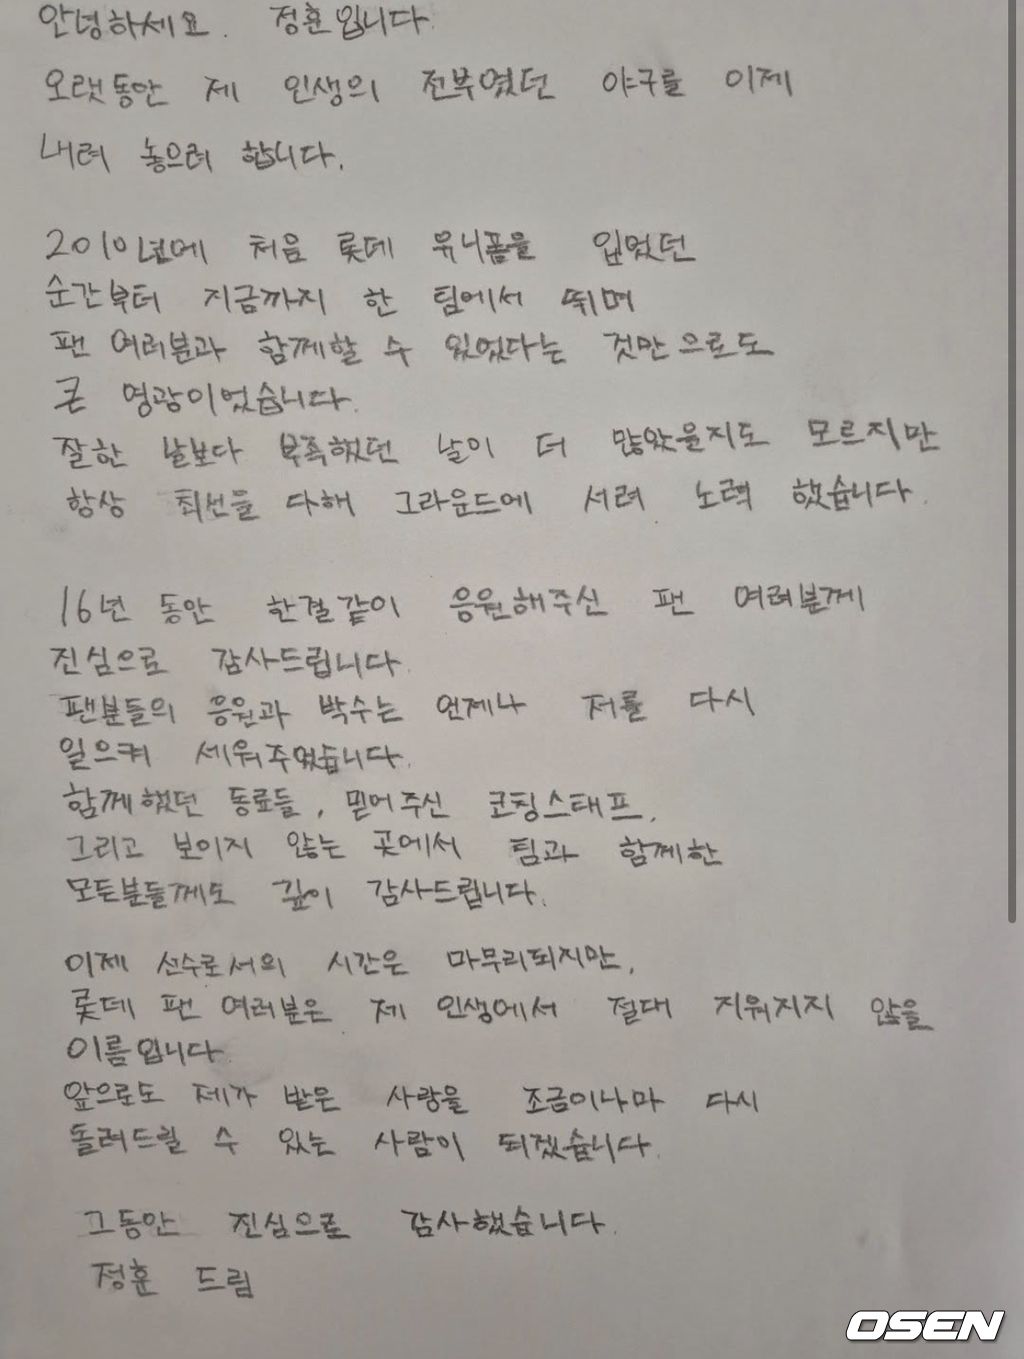 안녕하세요. 정훈입니다.
오랫동안 제 인생의 전부였던 야구를 이제
내려 놓으려 합니다.
2010년에 처음 롯데 유니폼을 입었던
순간부터 지금까지 한 팀에서 뛰며
팬 여러분과 함께할 수 있었다는 것만으로도
큰 영광이었습니다.
잘한 날보다 부족했던 날이 더 많았을지도 모르지만
항상 최선을 다해 그라운드에 서려 노력 했습니다.
16년 동안 한결같이 응원해주신 팬 여러분께
진심으로 감사드립니다.
팬분들의 응원과 박수는 언제나 저를 다시
일으켜 세워주었습니다.
함께했던 동료들, 믿어주신 코칭스태프,
그리고 보이지 않는 곳에서 팀과 함께한
모든분들께도 깊이 감사드립니다.
이제 선수로서의 시간은 마무리되지만,
롯데 팬 여러분은 제 인생에서 절대 지워지지 않을
이름입니다.
앞으로도 제가 받은 사랑을 조금이나마 다시
돌려드릴 수 있는 사람이 되겠습니다.
그동안 진심으로 감사했습니다.
정훈 드림
OSEN